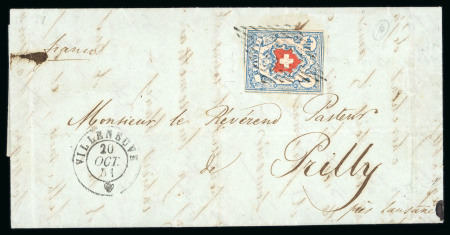 franco
Monsieur le Révérend Pasteur
de
Prilly
près Lausanne
VILLENEUVE
20
OCT
51